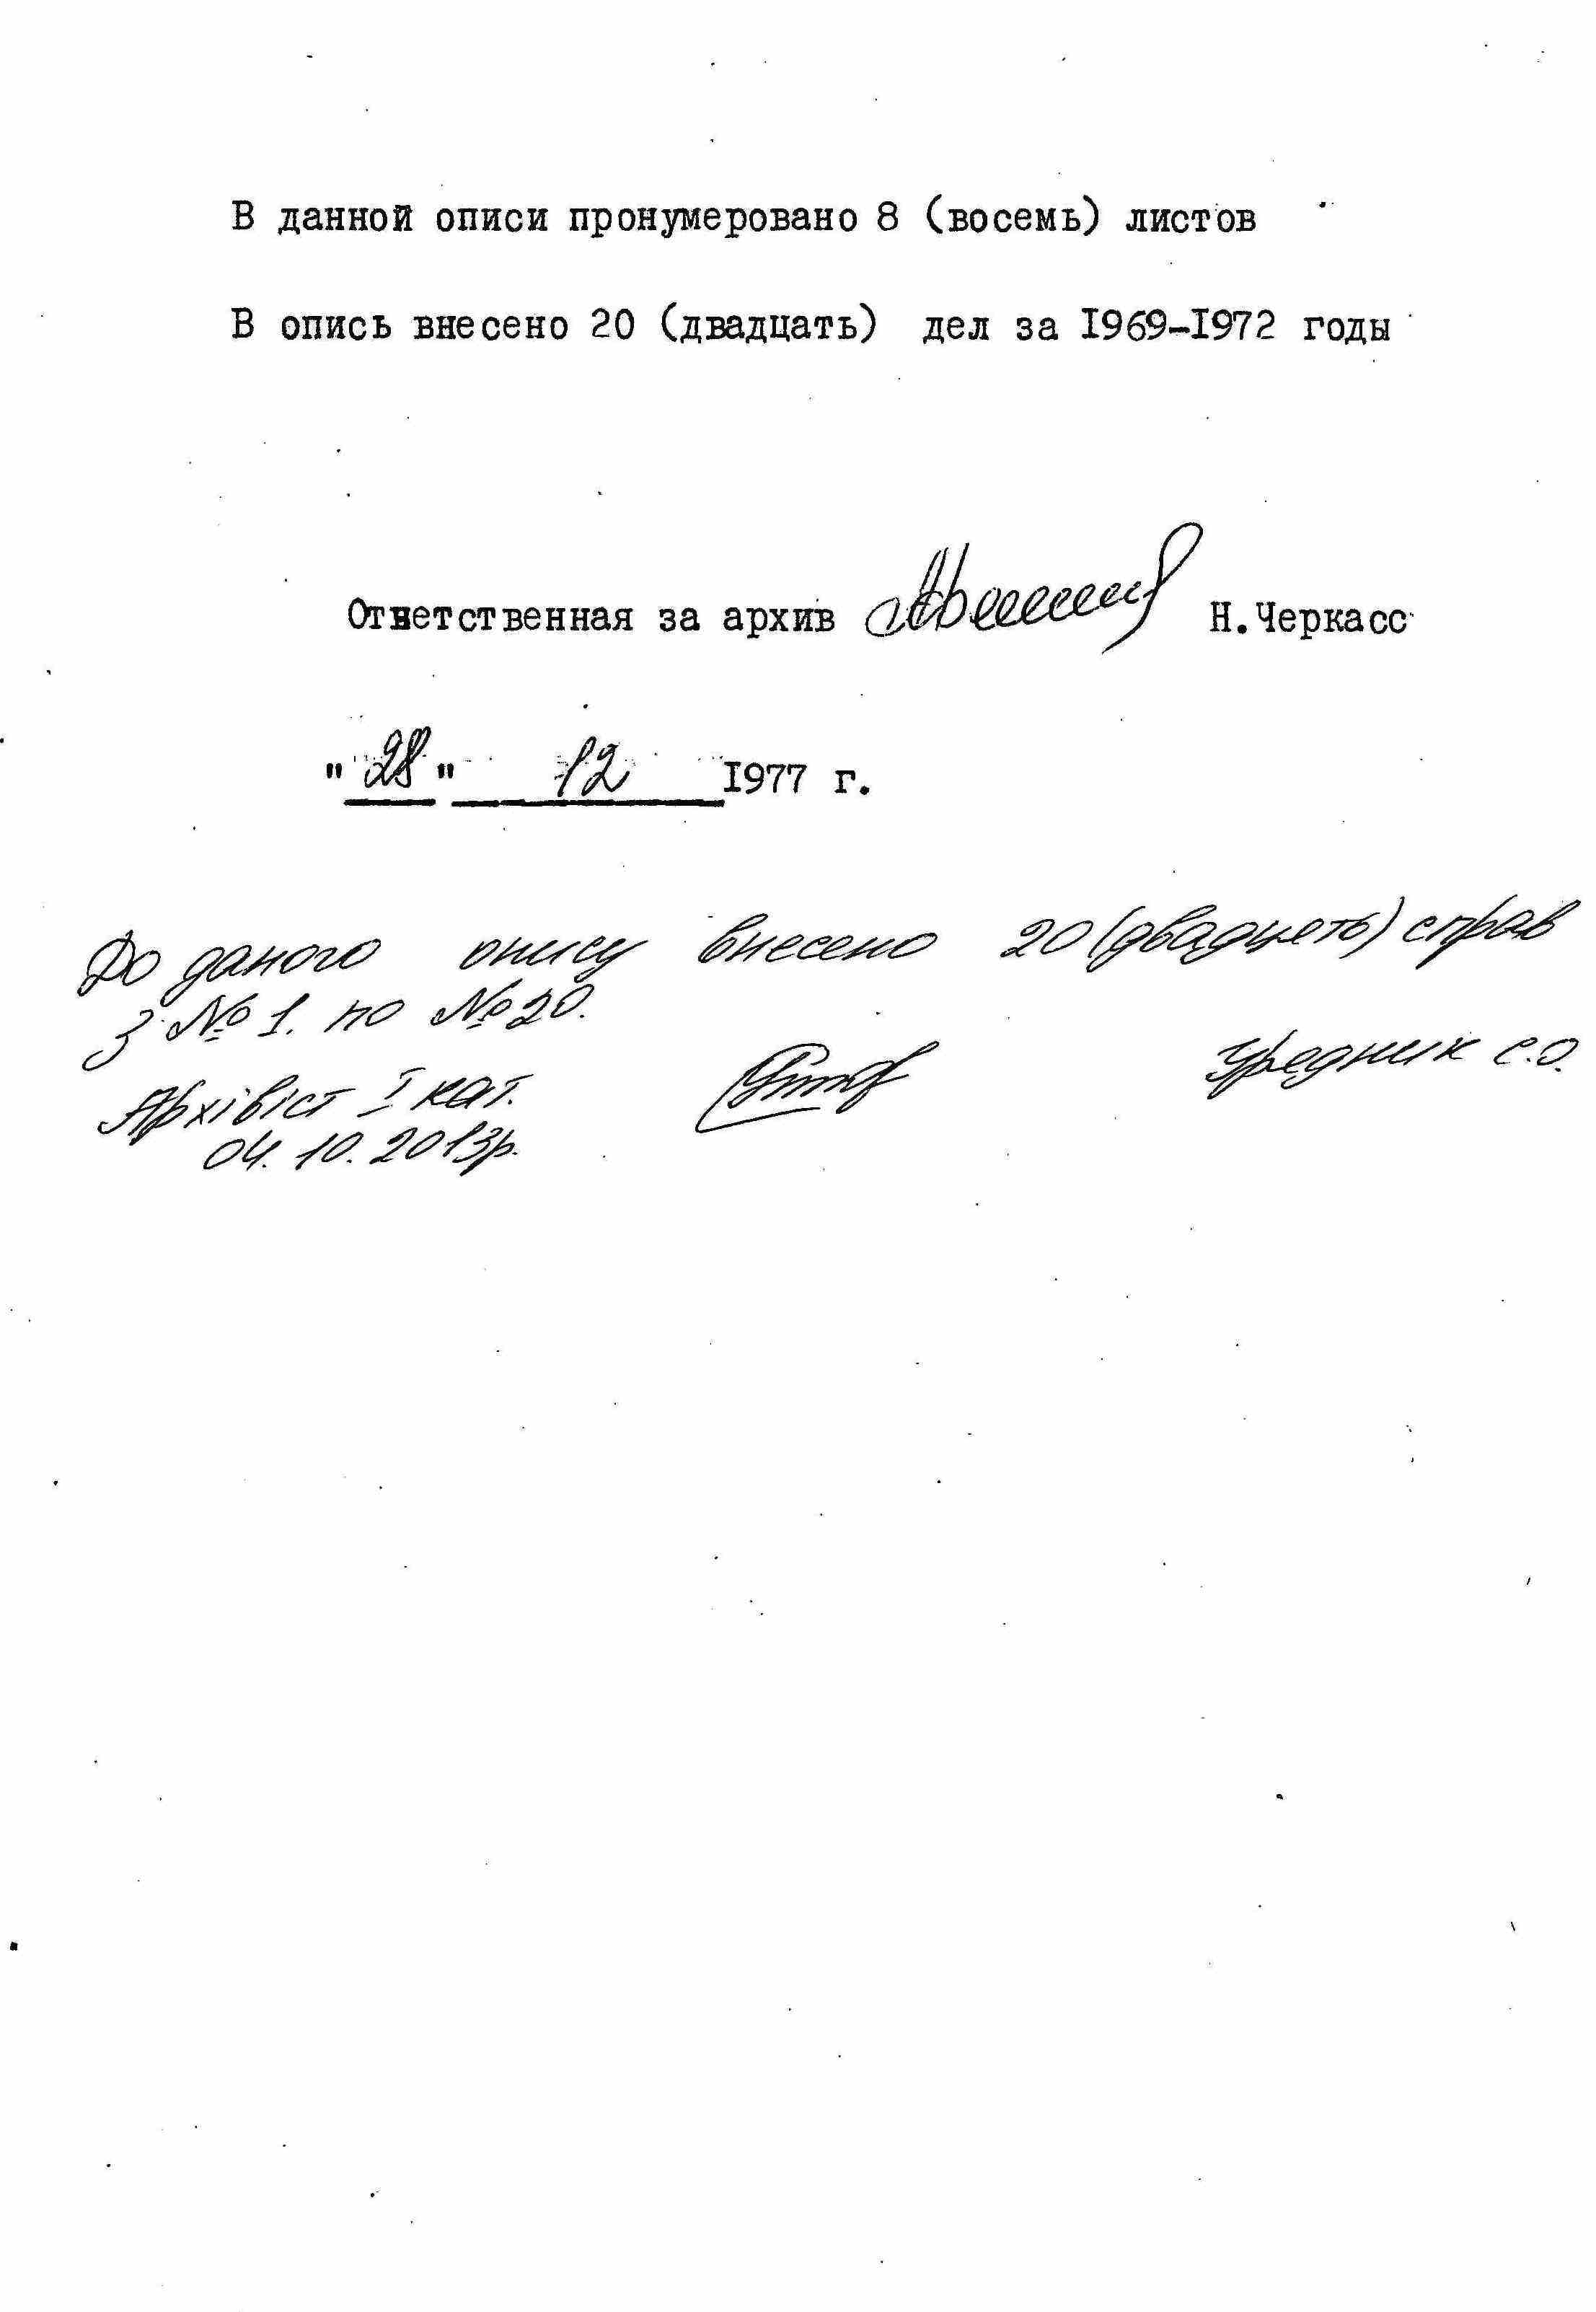 В данной описи пронумеровано 8 (восемь) листов
В опись внесено 20 (двадцать) дел за I969-I972 годы
Ответственная за архив Н.Черкасс
"28" 12 I977 г.
До даного опису внесено 20 (двадцять) справ
з № 1. по № 20.
Архівіст I кат. Урядник С.О.
04. 10. 2013р.